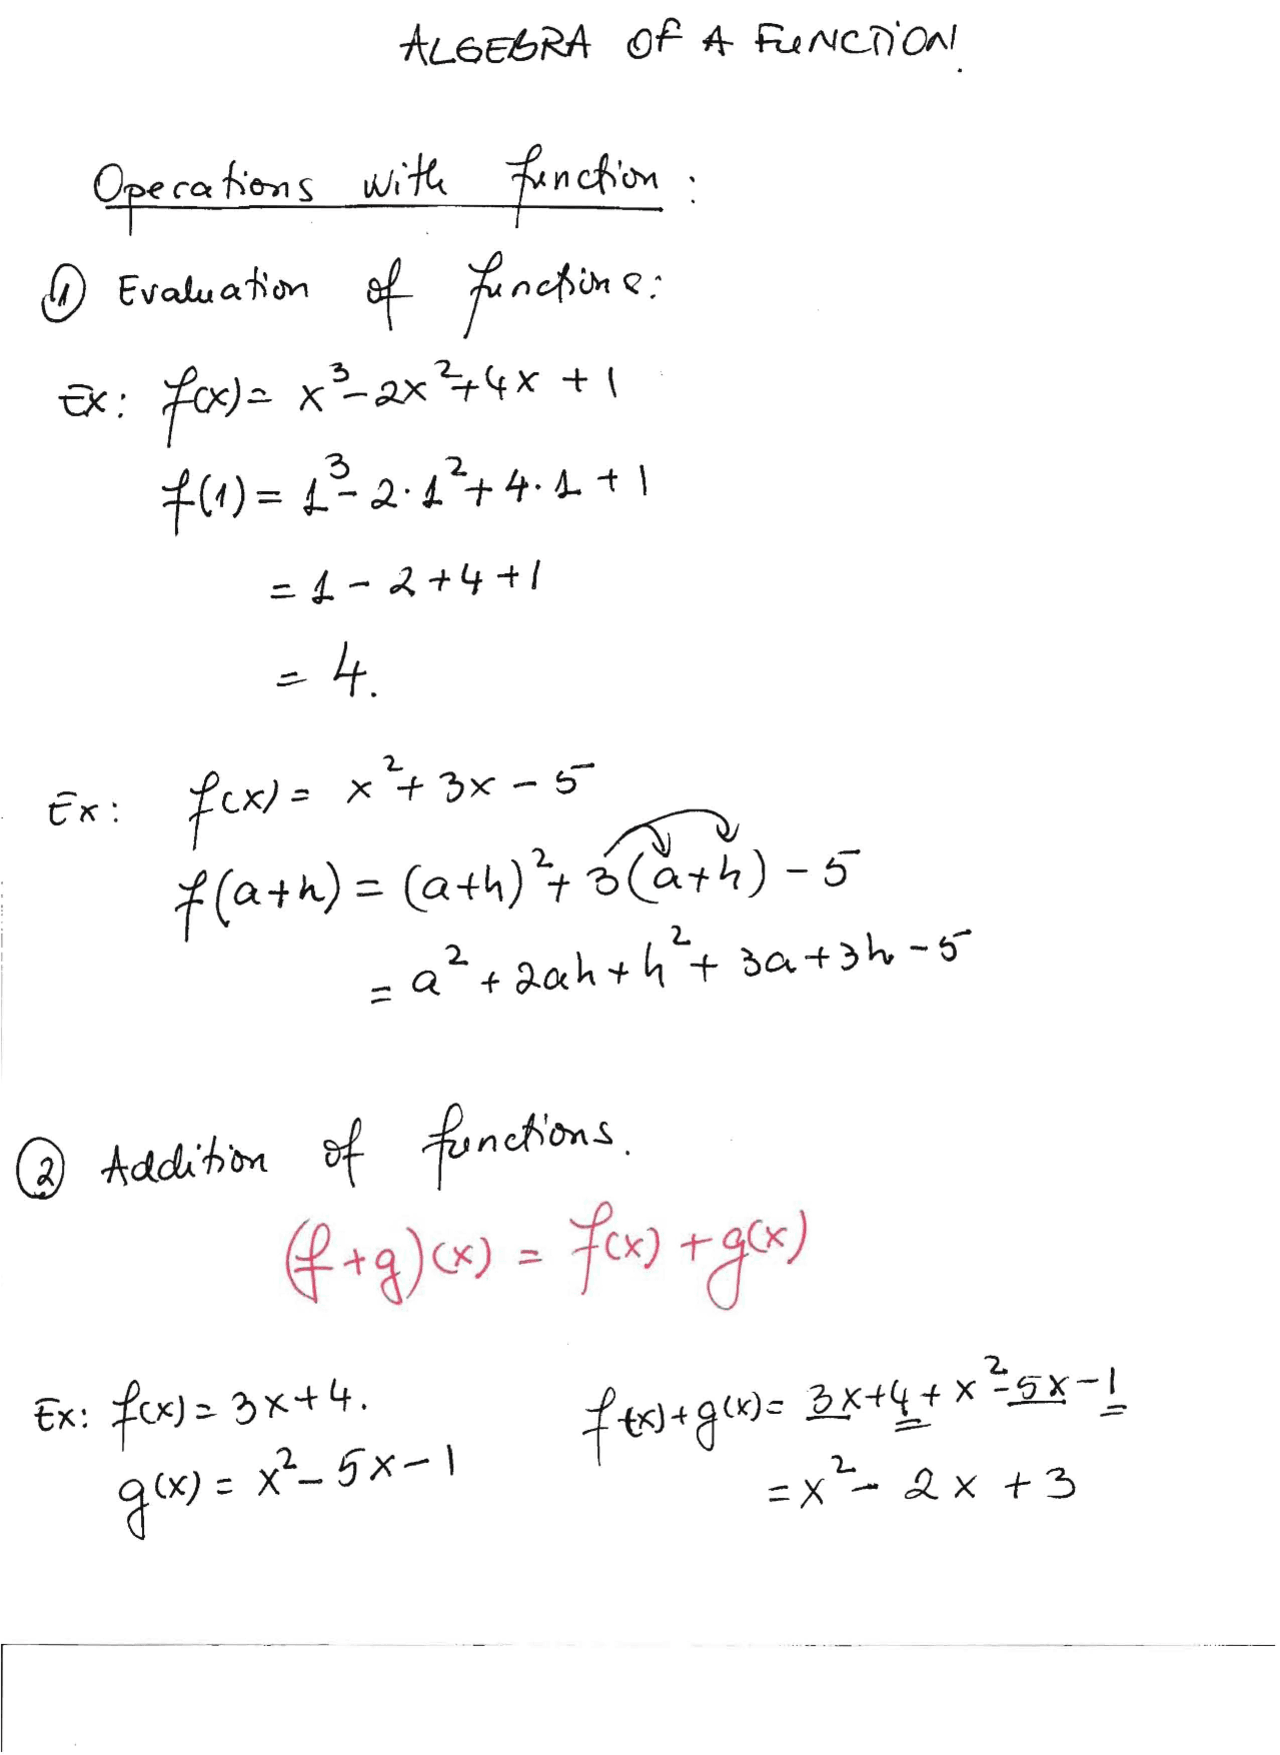 ALGEBRA OF A FUNCTION.
Operations with function:
① Evaluation of functions:
Ex: f(x) = x³ - 2x² + 4x + 1
f(1) = 1³ - 2·1² + 4·1 + 1
= 1 - 2 + 4 + 1
= 4.
Ex: f(x) = x² + 3x - 5
f(a+h) = (a+h)² + 3(a+h) - 5
= a² + 2ah + h² + 3a + 3h - 5
② Addition of functions.
(f+g)(x) = f(x) + g(x)
Ex: f(x) = 3x + 4.
g(x) = x² - 5x - 1
f(x) + g(x) = 3x + 4 + x² - 5x - 1
= x² - 2x + 3